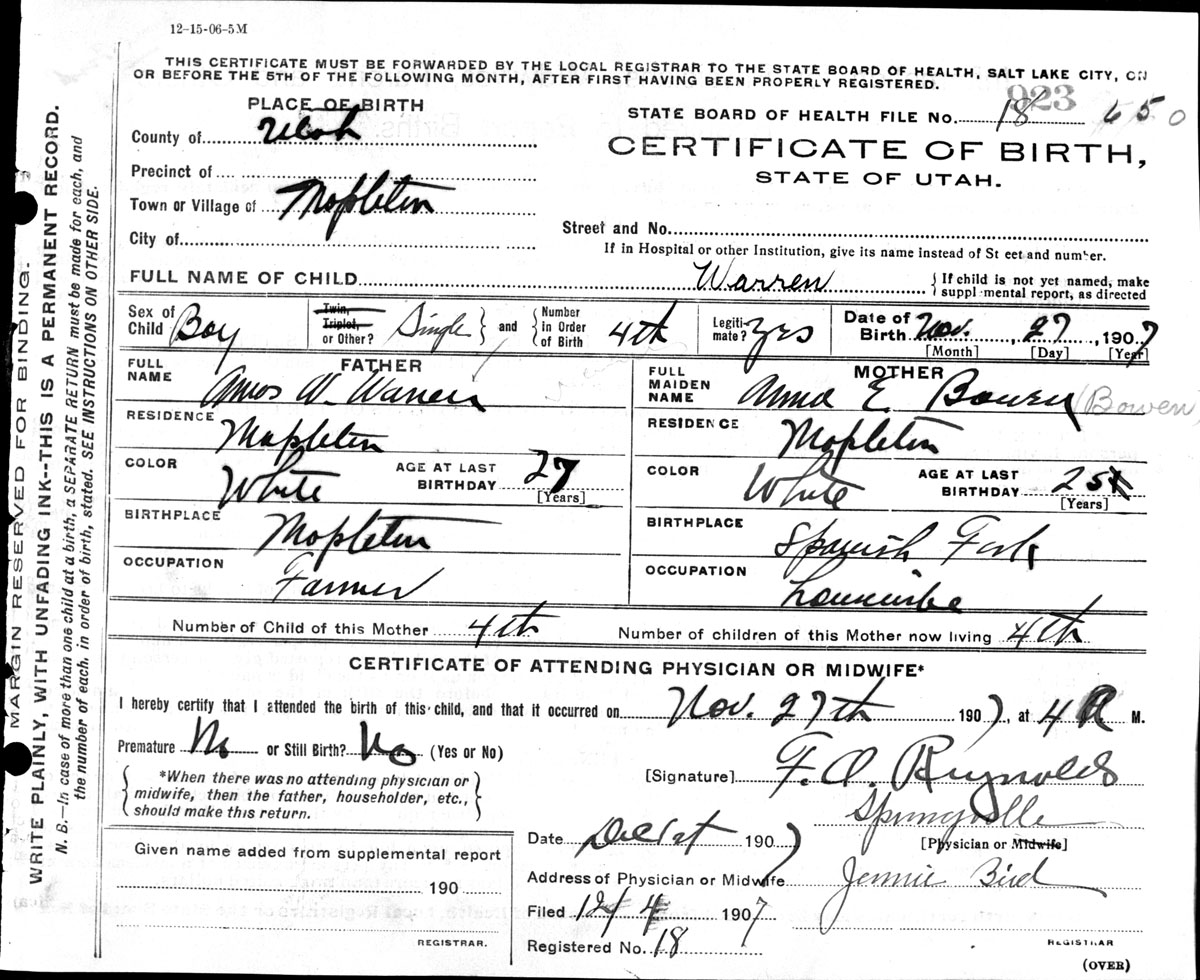 12-15-06-5M
THIS CERTIFICATE MUST BE FORWARDED BY THE LOCAL REGISTRAR TO THE STATE BOARD OF HEALTH, SALT LAKE CITY, ON
OR BEFORE THE 5TH OF THE FOLLOWING MONTH, AFTER FIRST HAVING BEEN PROPERLY REGISTERED.
923
PLACE OF BIRTH
STATE BOARD OF HEALTH FILE No. 18 650
County of Utah
CERTIFICATE OF BIRTH,
STATE OF UTAH.
Precinct of
Town or Village of Mapleton
City of
Street and No.
If in Hospital or other Institution, give its name instead of St eet and number.
FULL NAME OF CHILD Warren } If child is not yet named, make
suppl mental report, as directed
Sex of Child Boy
Twin, Triplet, or Other? Single } and { Number in Order of Birth 4th
Legiti-mate? Yes
Date of Birth Nov. 27, 1907
[Month] [Day] [Year]
FATHER
FULL NAME Amos W. Warren
MOTHER
FULL MAIDEN NAME Anna E Bowen (Bowen)
RESIDENCE Mapleton
RESIDENCE Mapleton
COLOR White AGE AT LAST BIRTHDAY 27 [Years]
COLOR White AGE AT LAST BIRTHDAY 25 [Years]
BIRTHPLACE Mapleton
BIRTHPLACE Spanish Fork
OCCUPATION Farmer
OCCUPATION Housewife
Number of Child of this Mother 4th Number of children of this Mother now living 4th
CERTIFICATE OF ATTENDING PHYSICIAN OR MIDWIFE*
I hereby certify that I attended the birth of this child, and that it occurred on Nov. 27th 1907, at 4 A M.
Premature No or Still Birth? No (Yes or No)
{ *When there was no attending physician or
midwife, then the father, householder, etc.,
should make this return. }
[Signature] F. O. Reynolds
Springville
[Physician or Midwife]
Date Dec 1st 1907
Given name added from supplemental report
190
REGISTRAR.
Address of Physician or Midwife Jennie Bird
Filed 12/4 1907
Registered No. 18
REGISTRAR
(OVER)
MARGIN RESERVED FOR BINDING.
WRITE PLAINLY, WITH UNFADING INK--THIS IS A PERMANENT RECORD.
N. B.—In case of more than one child at a birth, a SEPARATE RETURN must be made for each, and
the number of each, in order of birth, stated. SEE INSTRUCTIONS ON OTHER SIDE.